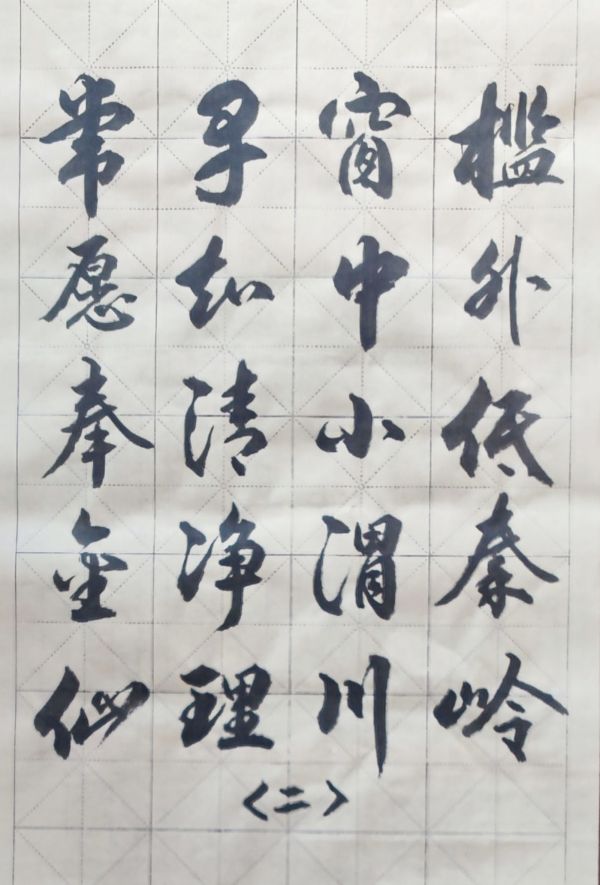 槛外低秦岭
窗中小渭川
早知清净理
常愿奉金仙
〈二〉